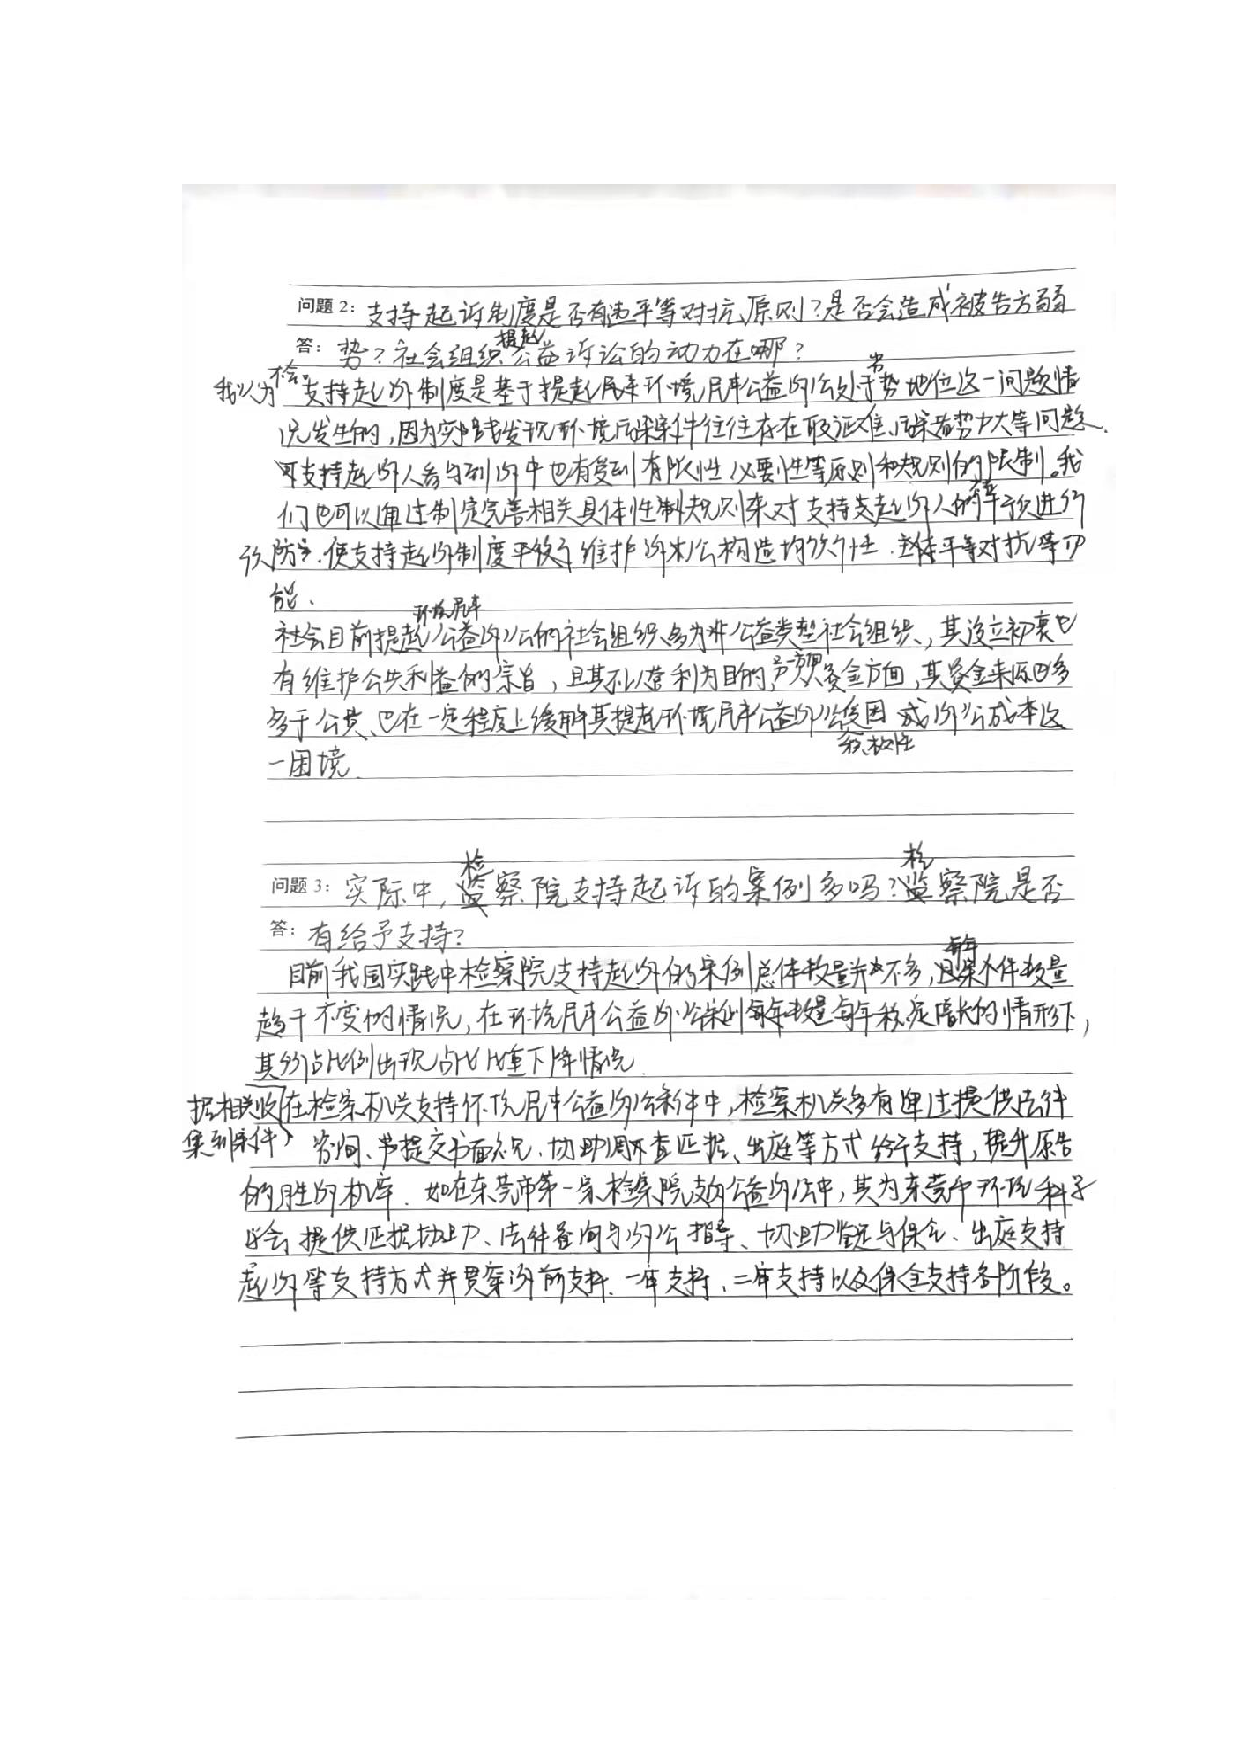 问题 2：支持起诉制度是否有违平等对抗原则？是否会造成被告方弱
答：势？社会组织提起公益诉讼的动力在哪？
我认为检支持起诉制度是基于提起民事环境民事公益诉讼处于劣势地位这一问题情
况发生的，因为实践发现环境污染案件往往存在取证难、污染者势力大等问题。
可支持起诉人参与到诉中也有受到有限性、必要性等原则和规则的限制。我
们也可以通过制定完善相关具体性制规则来对支持起诉人的行进行
预防，使支持起诉制度平衡维护诉讼构造均衡性、主体平等对抗等功
能、
社会目前提起环境民事公益诉讼的社会组织多为非公益类型社会组织，其设立初衷也
有维护公共利益的宗旨，且其不以营利为目的，另一方面资金方面，其资金来源多
多于公费、已在一定程度上缓解其提起环境民事公益诉讼积极性因成诉讼成本这
一困境
问题 3：实际中，检察院支持起诉的案例多吗？检察院是否
答：有给予支持？
目前我国实践中检察院支持起诉的案例总体数量并不多，且每年案件数量
趋于不变的情况，在环境民事公益诉讼案例数量每年稳定增长的情形下，
其所占比例出现占比比重下降情况
据相关收集到案件，在检察机关支持环境民事公益诉讼案件中，检察机关多有通过提供法律
咨询、提交书面意见、协助调查证据、出庭等方式给予支持，提升原告
的胜诉机率. 如在东莞市第一宗检察院支持公益诉讼中，其为东莞市环境科学
学会提供证据协助、法律查询与诉讼指导、协助鉴定与保全、出庭支持
起诉等支持方式并贯穿诉前支持、一审支持、二审支持以及保全支持各阶段。